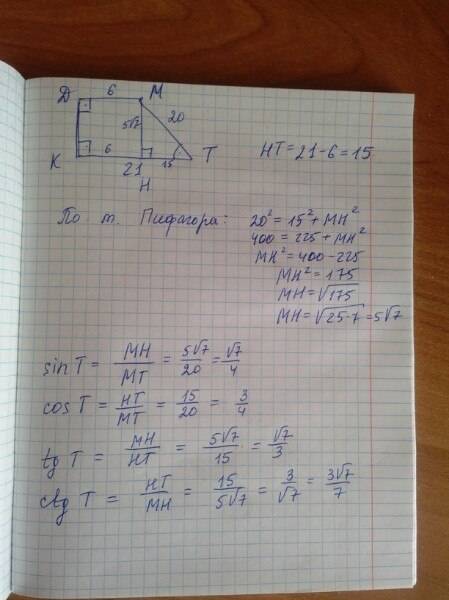 D 6 M
5√7 20
K 6 21 H 15 T
HT = 21 - 6 = 15
По т. Пифагора: 20² = 15² + MH²
400 = 225 + MH²
MH² = 400 - 225
MH² = 175
MH = √175
MH = √25·7 = 5√7
sin T = MH/MT = 5√7/20 = √7/4
cos T = HT/MT = 15/20 = 3/4
tg T = MH/HT = 5√7/15 = √7/3
ctg T = HT/MH = 15/5√7 = 3/√7 = 3√7/7